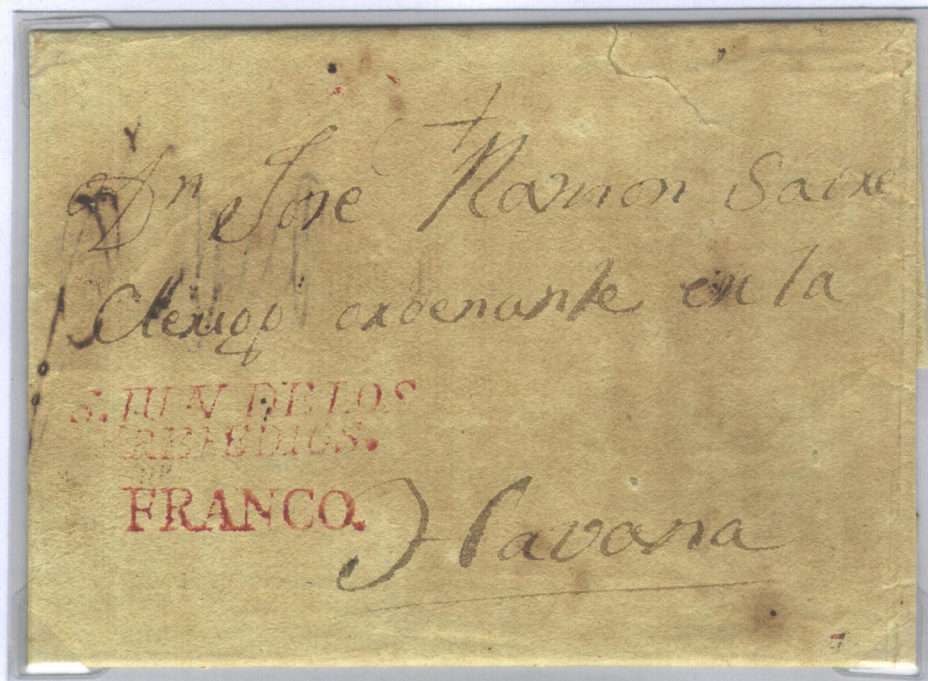 Dn José Ramon
Clerigo ordenante en la
S. JUAN DE LOS
REMEDIOS.
FRANCO.
Havana